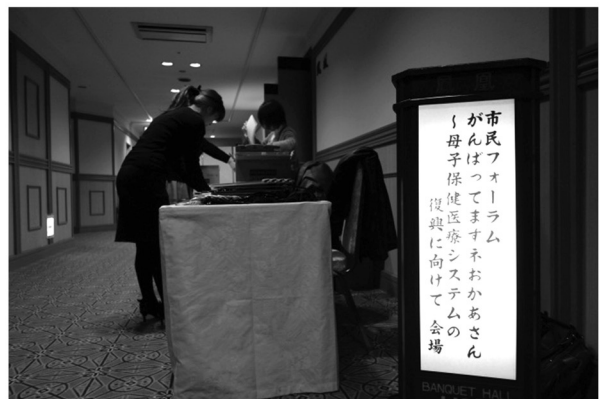 市民フォーラム
がんばってますネおかあさん
〜母子保健医療システムの
復興に向けて 会場
BANQUET HALL